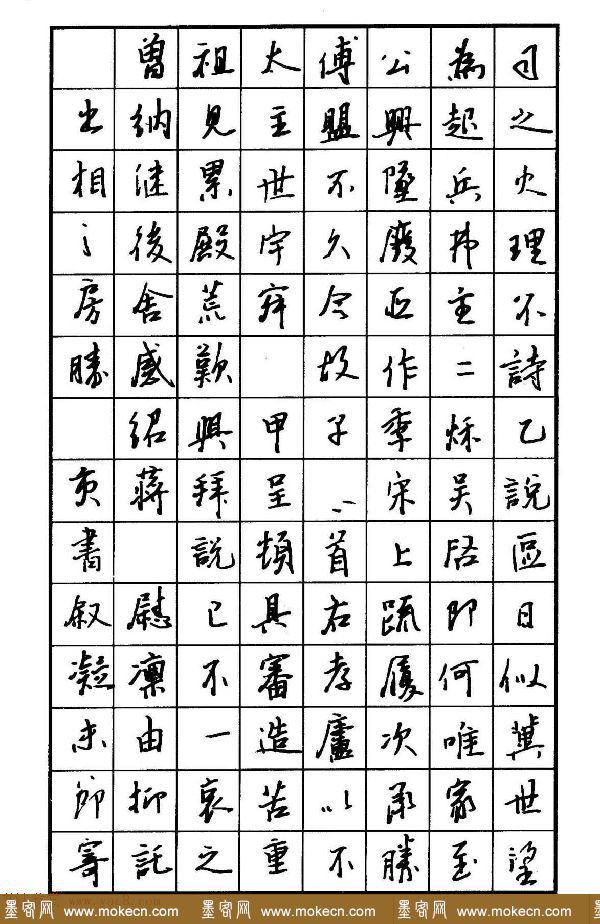 曾祖太傅公為司
出納見主盟興起之
相継累世不墜兵火
後殿宇久廢弗理
房舍荒今正主不
勝感歎 故作二詩
紹興甲子季秌乙
亥蔣拜呈 宋吴說
書 說頓首上啓區
叙慰已具右疏即日
凝凛不審孝履何似
未由一造廬次唯冀
節抑哀苦以承家世
寄託之重不勝至望
墨客网 www.mokecn.com 墨客网 www.mokecn.com 墨客网 www.mokecn.com 墨客网 www.mokecn.com